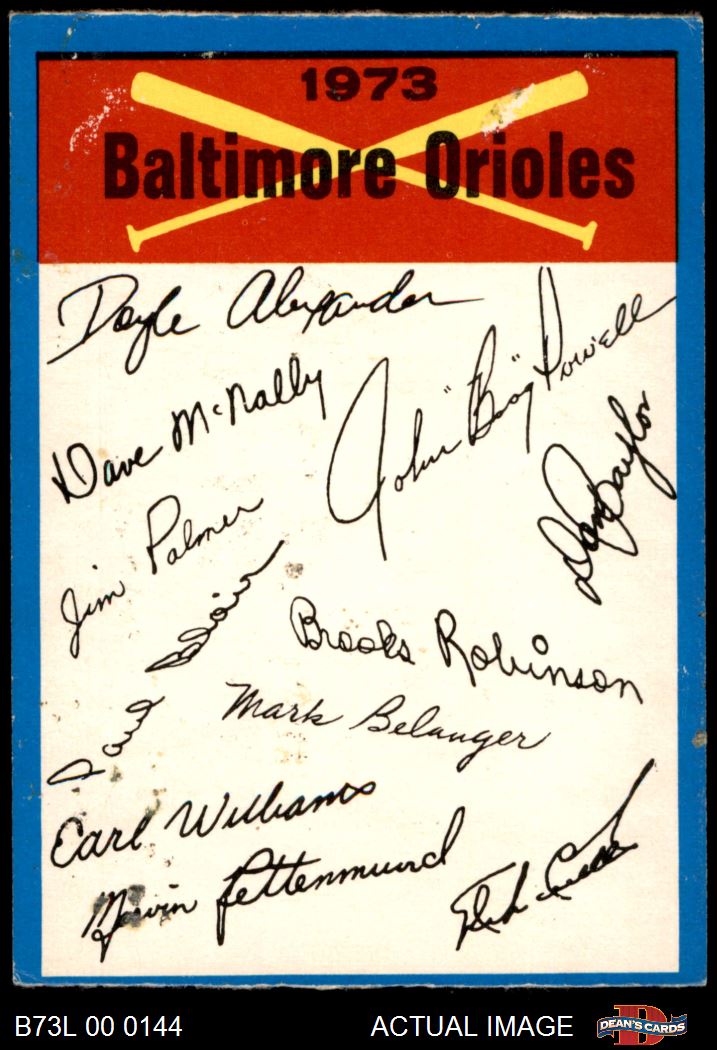 1973
Baltimore Orioles
Doyle Alexander
Dave McNally
John "Boog" Powell
Don Baylor
Jim Palmer
Paul Blair
Brooks Robinson
Mark Belanger
Earl Williams
Mervin Rettenmund
B73L 00 0144
ACTUAL IMAGE
DEAN'S CARDS